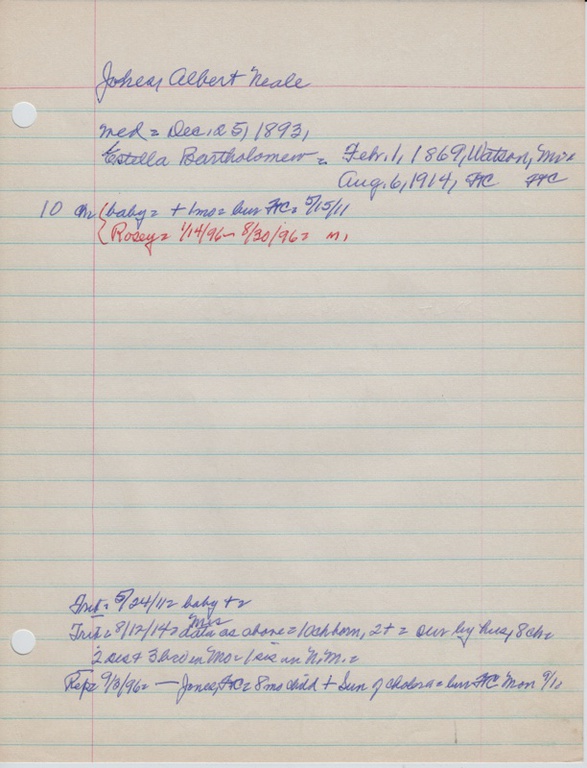 Albert Neale
med = Dec. 25, 1893,
Estella Bartholomew = Feb. 1, 1869, Watson, Mo =
Aug. 6, 1914, FC FC
10 ch (baby = + 1mo = bur FC = 5/15/11
Rosey = 1/14/96 - 8/30/96 = m.
Trib = 5/24/11 = baby + =
Mrs
Trib = 8/12/14 = data as above = 10 ch born, 2 + = sur by hus, 8 ch =
2 sis + 3 bro in Mo = 1 sis in N.M. =
Rep = 9/3/96 = — Jones, FC = 8 mo child + Sun of cholera = bur FC Mon